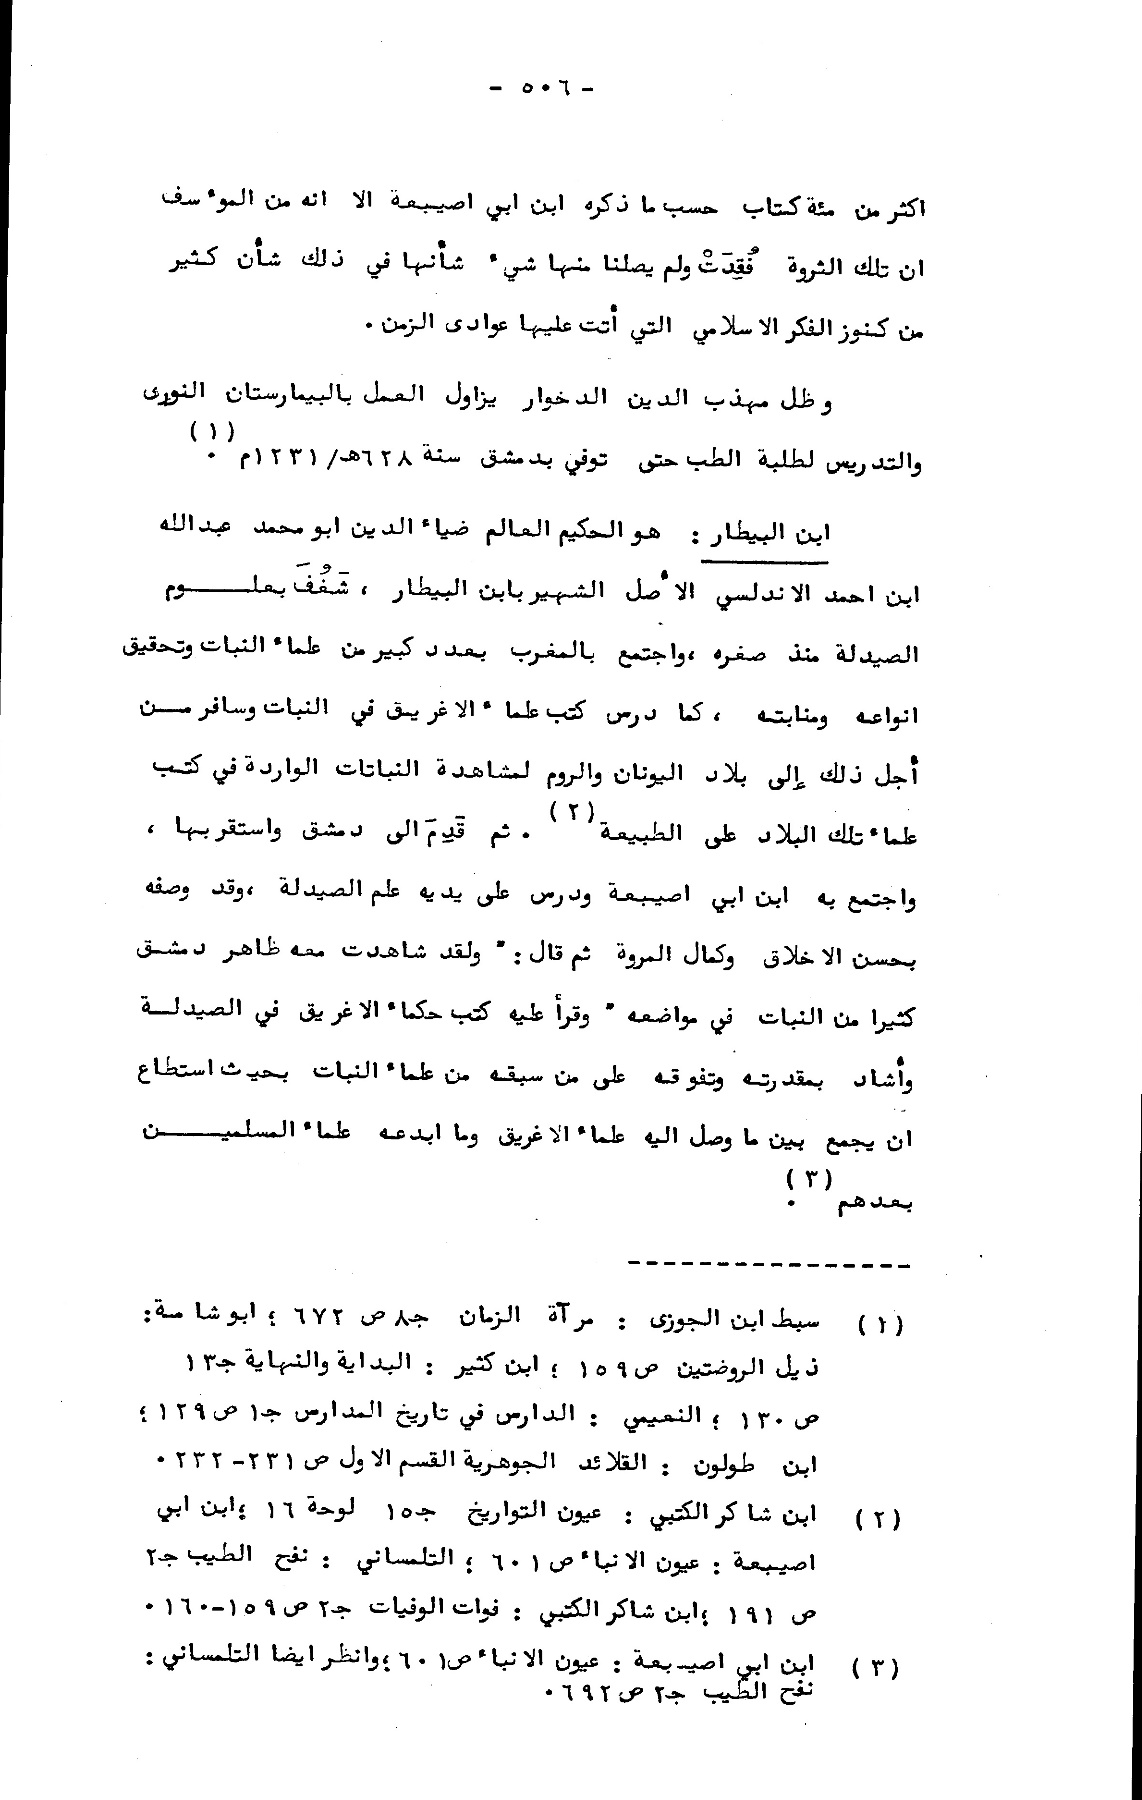 - ٥٠٦ -
اكثر من مئة كتاب حسب ما ذكره ابن ابي اصيبعة الا انه من الموٴسف
ان تلك الثروة فُقِدَتْ ولم يصلنا منها شيء شأنها في ذلك شأن كثير
من كنوز الفكر الاسلامي التي أتت عليها عوادى الزمن .
وظل مهذب الدين الدخوار يزاول العمل بالبيمارستان النورى
والتدريس لطلبة الطب حتى توفي بدمشق سنة ٦٢٨هـ/١٢٣١م (١) .
ابن البيطار : هو الحكيم العالم ضياء الدين ابو محمد عبدالله
ابن احمد الاندلسي الأصل الشهير بابن البيطار ، شَغُفَ بعلـــــوم
الصيدلة منذ صغره ،واجتمع بالمغرب بعدد كبير من علماء النبات وتحقيق
انواعه ومنابته ، كما درس كتب علماء الاغريق في النبات وسافر مــن
أجل ذلك إلى بلاد اليونان والروم لمشاهدة النباتات الواردة في كتب
علماء تلك البلاد على الطبيعة (٢) . ثم قَدِمَ الى دمشق واستقر بها ،
واجتمع به ابن ابي اصيبعة ودرس على يديه علم الصيدلة ،وقد وصفه
بحسن الاخلاق وكمال المروة ثم قال : " ولقد شاهدت معه ظاهر دمشق
كثيرا من النبات في مواضعه " وقرأ عليه كتب حكماء الاغريق في الصيدلـة
وأشاد بمقدرته وتفوقه على من سبقه من علماء النبات بحيث استطاع
ان يجمع بين ما وصل اليه علماء الاغريق وما ابدعه علماء المسلميـــــن
بعدهم (٣) .
----------------
(١) سبط ابن الجوزى : مرآة الزمان جـ٨ ص ٦٧٢ ؛ ابو شامة:
ذيل الروضتين ص ١٥٩ ؛ ابن كثير : البداية والنهاية جـ١٣
ص ١٣٠ ؛ النعيمي : الدارس في تاريخ المدارس جـ١ ص ١٢٩ ؛
ابن طولون : القلائد الجوهرية القسم الاول ص ٢٣١- ٢٣٢ .
(٢) ابن شاكر الكتبي : عيون التواريخ جـ١٥ لوحة ١٦ ؛ابن ابي
اصيبعة : عيون الانباء ص ٦٠١ ؛ التلمساني : نفح الطيب جـ٢
ص ١٩١ ؛ابن شاكر الكتبي : فوات الوفيات جـ٢ ص ١٥٩-١٦٠ .
(٣) ابن ابي اصيبعة : عيون الانباء ص٦٠١ ؛وانظر ايضا التلمساني :
نفح الطيب جـ٢ ص ٦٩٢ .